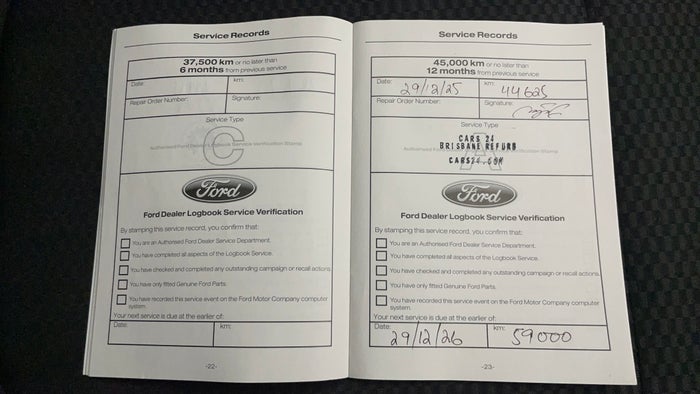 Service Records
37,500 km or no later than
6 months from previous service
Date: km:
Repair Order Number: Signature:
Service Type
C
Authorised Ford Dealer Logbook Service Verification Stamp
Ford
Ford Dealer Logbook Service Verification
By stamping this service record, you confirm that:
You are an Authorised Ford Dealer Service Department.
You have completed all aspects of the Logbook Service.
You have checked and completed any outstanding campaign or recall actions.
You have only fitted Genuine Ford Parts.
You have recorded this service event on the Ford Motor Company computer
system.
Your next service is due at the earlier of:
Date: km:
-22-
Service Records
45,000 km or no later than
12 months from previous service
Date: 29/12/25 km: 44625
Repair Order Number: Signature:
Service Type
A
CARS 24
BRISBANE REFURB
CARS24.COM
Ford
Ford Dealer Logbook Service Verification
By stamping this service record, you confirm that:
You are an Authorised Ford Dealer Service Department.
You have completed all aspects of the Logbook Service.
You have checked and completed any outstanding campaign or recall actions.
You have only fitted Genuine Ford Parts.
You have recorded this service event on the Ford Motor Company computer
system.
Your next service is due at the earlier of:
Date: 29/12/26 km: 59000
-23-